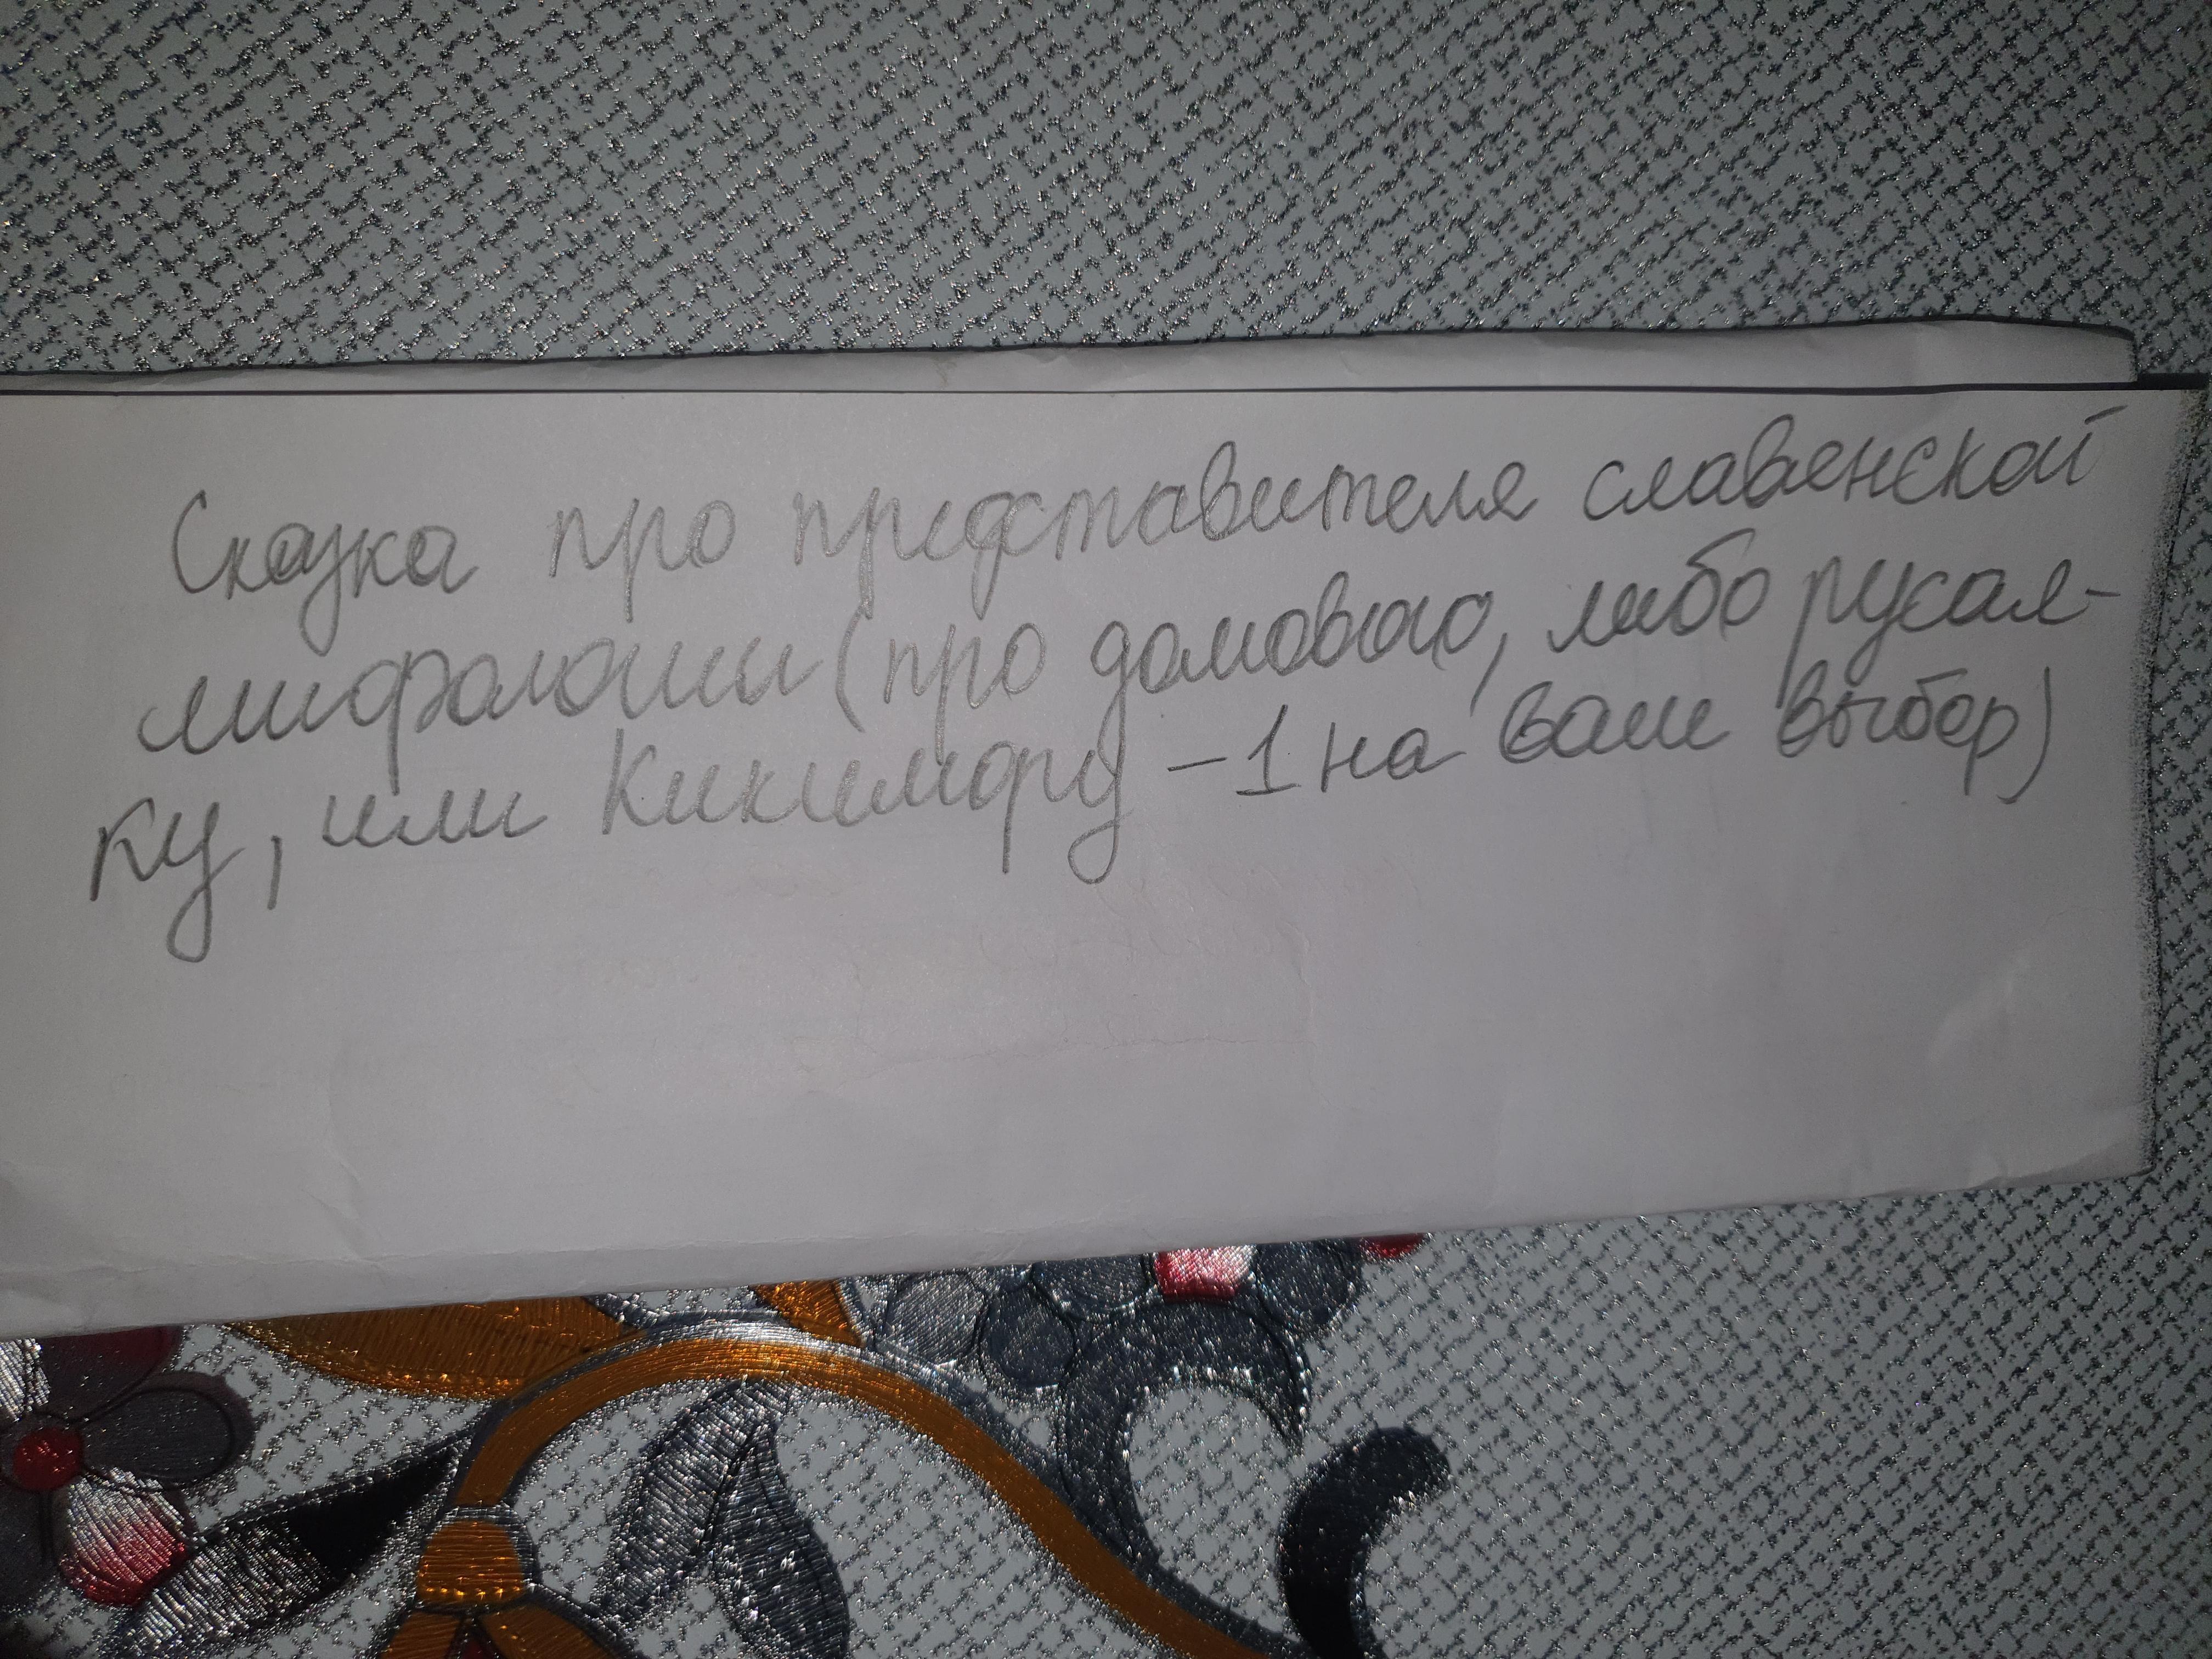 Сказка про представителя славенской
мифологии (про домового, либо русал-
ку, или Кикимору - 1 на ваш выбор)